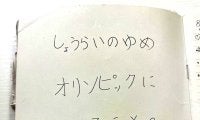 しょうらいのゆめ
オリンピックに